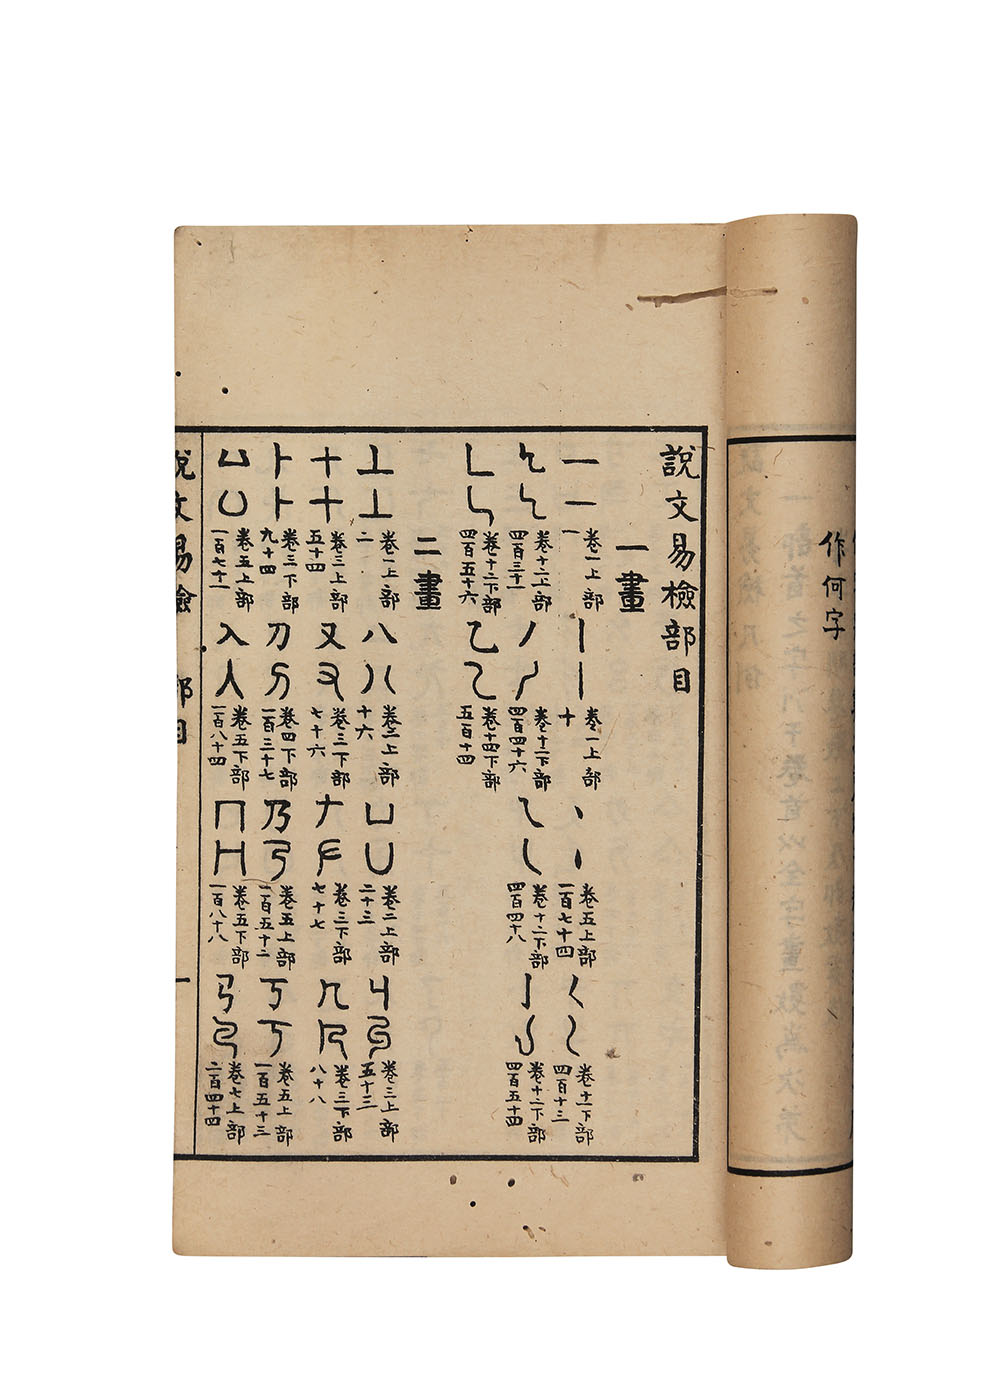 作何字
說文易檢部目
一畫
一 一 卷一上部一 丨 丨 卷一上部十 丶 丶 卷五上部一百七十四 𡿨 𡿨 卷十一下部四百十三
卷十二上部四百三十一 丿 丿 卷十二下部四百四十六 乁 乁 卷十二下部四百四十八 亅 亅 卷十二下部四百五十四
𠃊 𠃊 卷十二下部四百五十六 乙 乙 卷十四下部五百十四
二畫
丄 丄 卷一上部二 八 八 卷二上部十六 凵 凵 卷二上部二十三 丩 丩 卷三上部五十三
十 十 卷三上部五十四 又 又 卷三下部七十六 𠂇 𠂇 卷三下部七十七 𠘧 𠘧 卷三下部八十八
卜 卜 卷三下部九十四 刀 刀 卷四下部一百三十七 乃 乃 卷五上部一百五十二 丂 丂 卷五上部一百五十三
凵 凵 卷五上部一百七十一 入 入 卷五下部一百八十四 冂 冂 卷五下部一百八十八 𢎘 𢎘 卷七上部二百四十四
說文易檢 部目 一